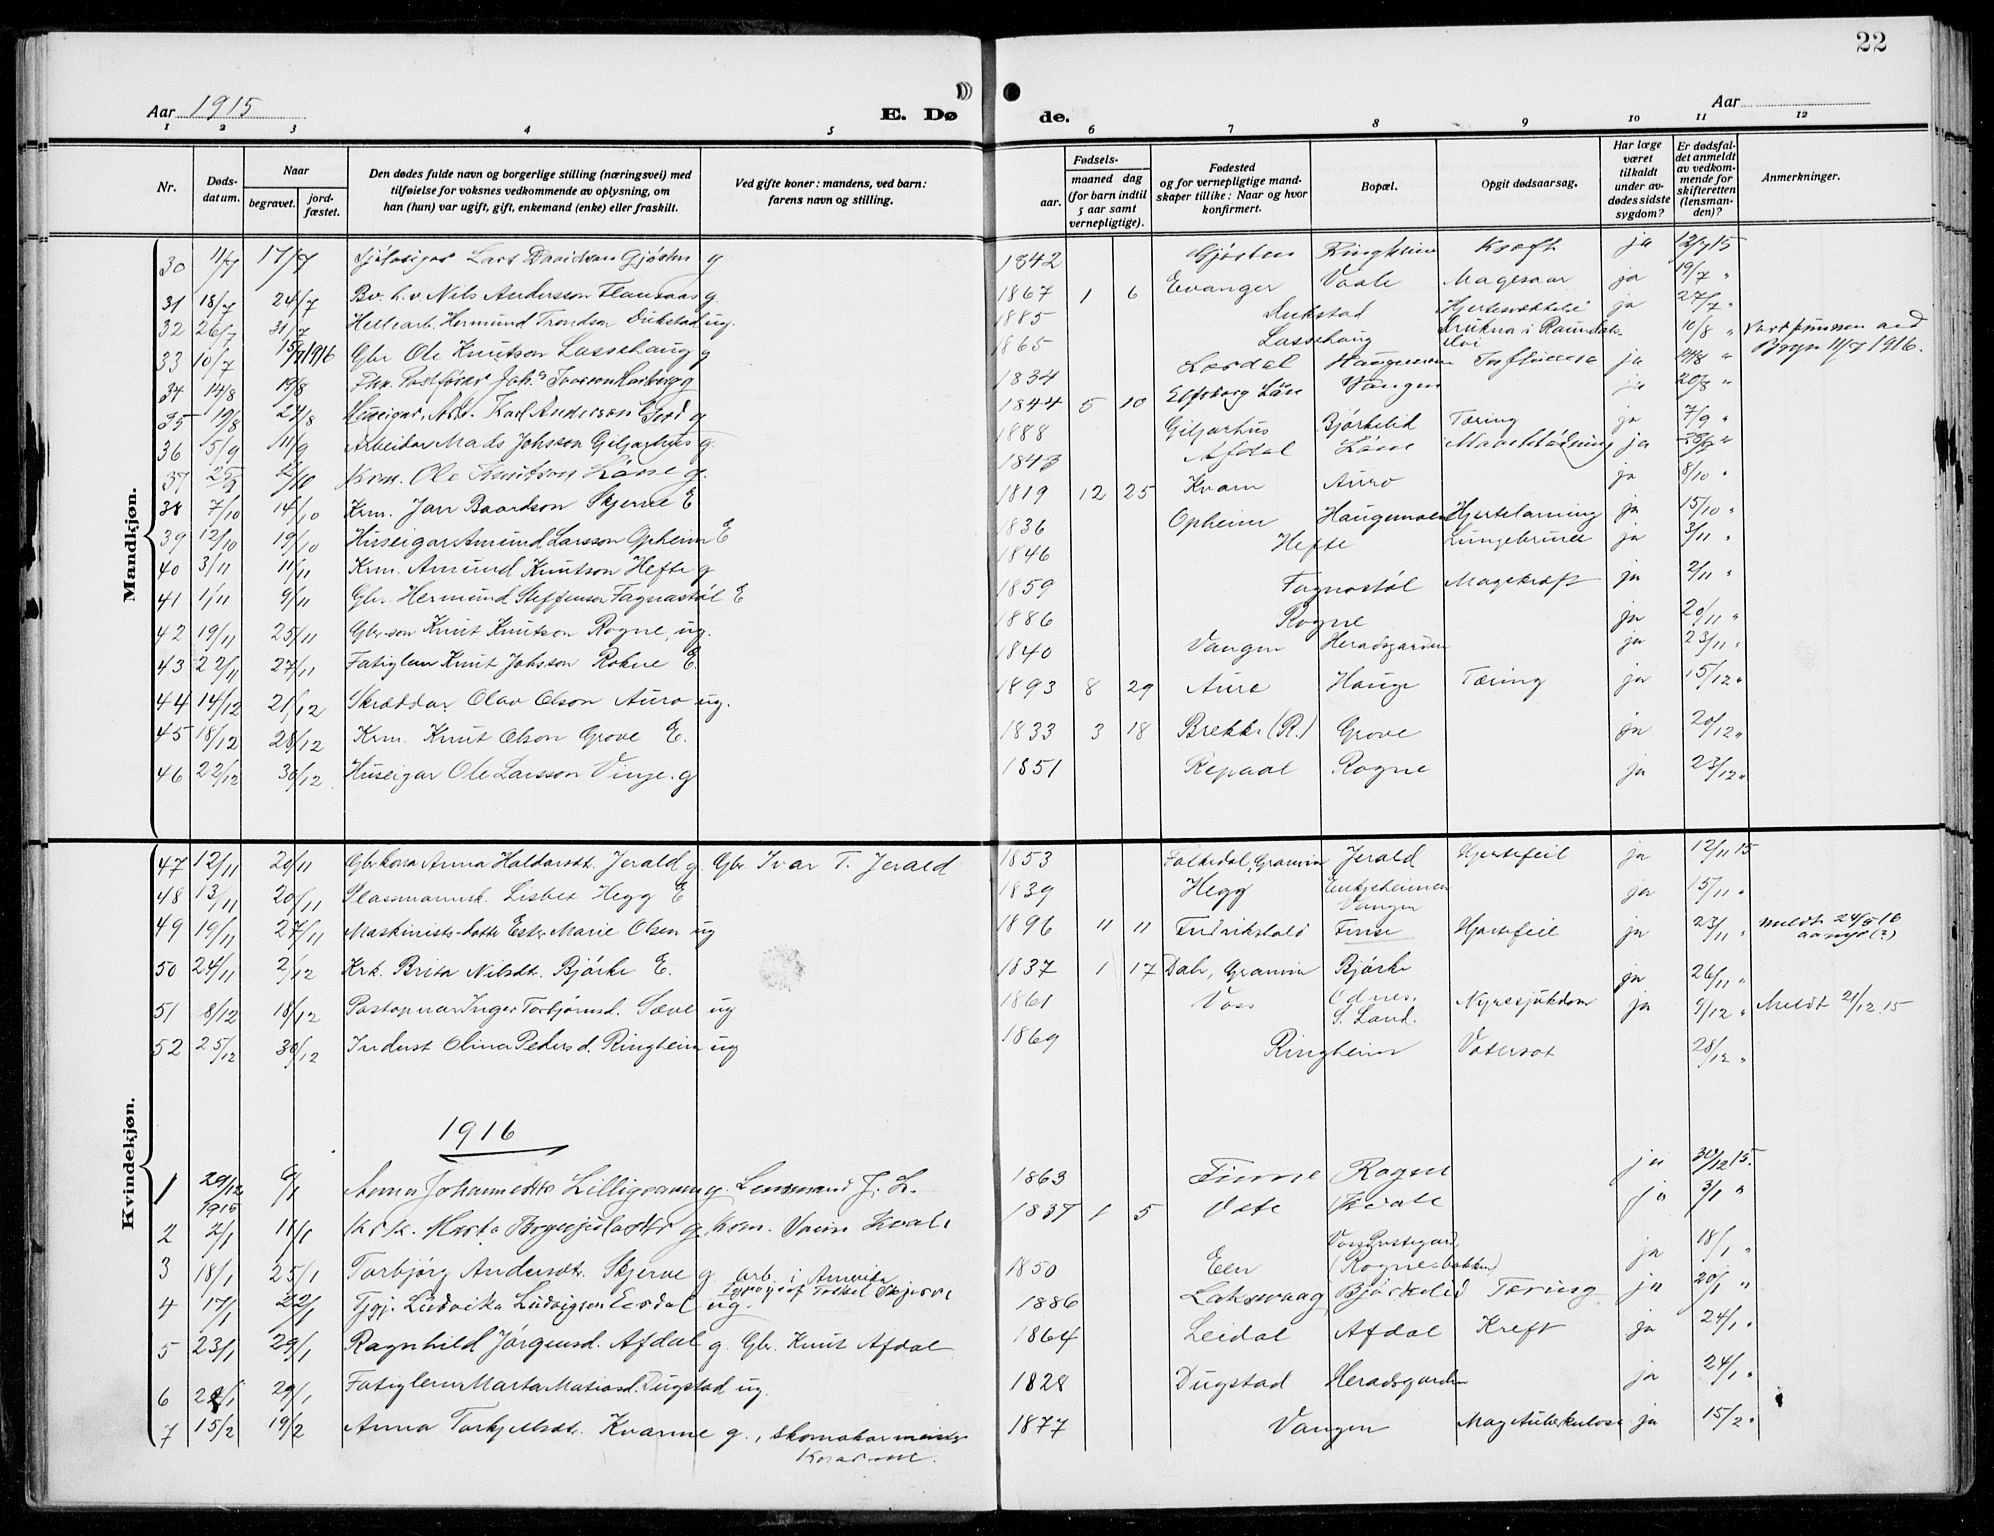 22
Aar 1915
E. Dø
de.
Aar
1 2 3 4 5 6 7 8 9 10 11 12
Nr.
Døds-
datum.
Naar
begravet.
jord-
fæstet.
Den dødes fulde navn og borgerlige stilling (næringsvei) med
tilføielse for voksnes vedkommende av oplysning, om
han (hun) var ugift, gift, enkemand (enke) eller fraskilt.
Ved gifte koner: mandens, ved barn:
farens navn og stilling.
Fødsels-
aar.
maaned dag
(for barn indtil
5 aar samt
vernepligtige).
Fødested
og for vernepligtige mand-
skaper tillike: Naar og hvor
konfirmert.
Bopæl.
Opgit dødsaarsag.
Har læge
været
tilkaldt
under av-
dødes sidste
sygdom?
Er dødsfal-
det anmeldt
av vedkom-
mende for
skifteretten
(lensman-
den)?
Anmerkninger.
Mandkjøn.
30 11/7 17/7 Lars Davidson Gjøsten g 1842 Gjøsten Ringheim Kræft ja 12/7 15
31 18/7 24/7 Nils Anderson Flansaas g. 1867 1 6 Evanger Vaale Magesaar ja 19/7 "
32 26/7 31/7 Hellearb. Hermund Trondson Dukstad ug. 1885 Dukstad ja 27/7 "
33 10/7 1916 Gbr Ole Knutson Lassehaug g 1865 Lassehaug Drukna i 10/8 " 11/7 1916.
34 14/8 19/8 1834 Lærdal ja 14/8 "
35 19/8 24/8 Huseigar, Karl Anderson g 1844 5 10 Vangen ja 20/8 "
36 5/9 11/9 Arbeidar Mads Johsson Giljarhus g. 1888 Giljarhus Bjørkelid Tæring ja 7/9 "
37 Krm. Ole Knutson Lösse g. 1843 Afdal Lösse ja
38 7/10 14/10 Krm. Baardson Skjerve E 1819 12 25 Kvam Auro ja 8/10 "
39 12/10 19/10 Huseigar Amund Larsson Opheim E 1836 Opheim Haugamoen Hjertelamning ja 15/10 "
40 3/11 11/11 Krm. Amund Knutson Hefte g 1846 Hefte ja 3/11 "
41 1/11 9/11 Gbr. Hermund Steffenson Fagnastøl E 1859 Fagnastøl Magekræft ja 2/11 "
42 19/11 25/11 Gbr.son Knut Knutson Rogne, ug. 1886 Rogne ja 20/11 "
43 22/11 27/11 Fatiglem Knut Johsson Rokne E. 1840 Vangen Heradsgarden ja 23/11 "
44 14/12 21/12 Skræddar Olav Olson Auro ug. 1893 8 29 Aure Hauge Tæring ja 15/12 "
45 18/12 28/12 Krm. Knut Olson Grove E. 1833 3 18 Brekke (R.) Grove ja 20/12 "
46 22/12 30/12 Huseigar Ole Larsson Vinje. g 1851 Repaal Rogne ja 23/12 "
Kvindekjøn.
47 12/11 20/11 Gbrkona Anna Haldorsdt. Jerald g. Gbr. Ivar T. Jerald 1853 Folkedal, Granvin Jerald Hjertefeil ja 12/11 15
48 13/11 20/11 Lisbet Hegg E 1839 Hegg Enkjeheimen Vangen ja 15/11 "
49 19/11 27/11 Maskinists-dotter Ester Marie Olsen ug 1896 " " Fredrikshald Finse Hjertefeil ja 23/11 " meldt 24/5 16
50 24/11 2/12 Krk. Brita Nilsdt. Bjørke E. 1837 1 17 Dale, Granvin Bjørke ja 26/11 "
51 8/12 18/12 Postopnar Inger Torbjørnsd. Sæve ug 1861 Voss Odnes, S. Land. Nyresjukdom ja 9/12 " Meldt 21/12 15
52 25/12 30/12 Indrest Olina Pedersd. Ringheim ug 1869 Ringheim Vatersot 28/12 "
1916
1 29/12 1915 6/1 Anna Johannesdtr Lilligraven g. Lensmand J. L. 1863 Finne Rogne ja 30/12 15.
2 2/1 11/1 Krk. Marta g Kvale 1837 1 5 Væte Kvale ja 3/1 "
3 18/1 25/1 Torbjørg Andersdt. Skjerve g. Arb. i Amerika Torkel Skjerve 1850 Een (Rognebakken) ja 18/1 "
4 17/1 22/1 Tjgj. Ludvika Ludvigson Eerdal ug. 1886 Laksevaag Bjørkelid Tæring ja 20/1 "
5 23/1 29/1 Ragnhild Jørgensd. Afdal g. Gbr. Knut Afdal 1864 Leidal Afdal Kreft ja 24/1 "
6 29/1 Fatiglem Marta Matiasd. Dugstad ug. 1828 Dugstad Heradsgarden ja 24/1 "
7 15/2 19/2 Anna Torkjelsdt. Kvarme g., skomakarmeister Kvarme. 1877 Vangen Magtuberkulose ja 15/2 "